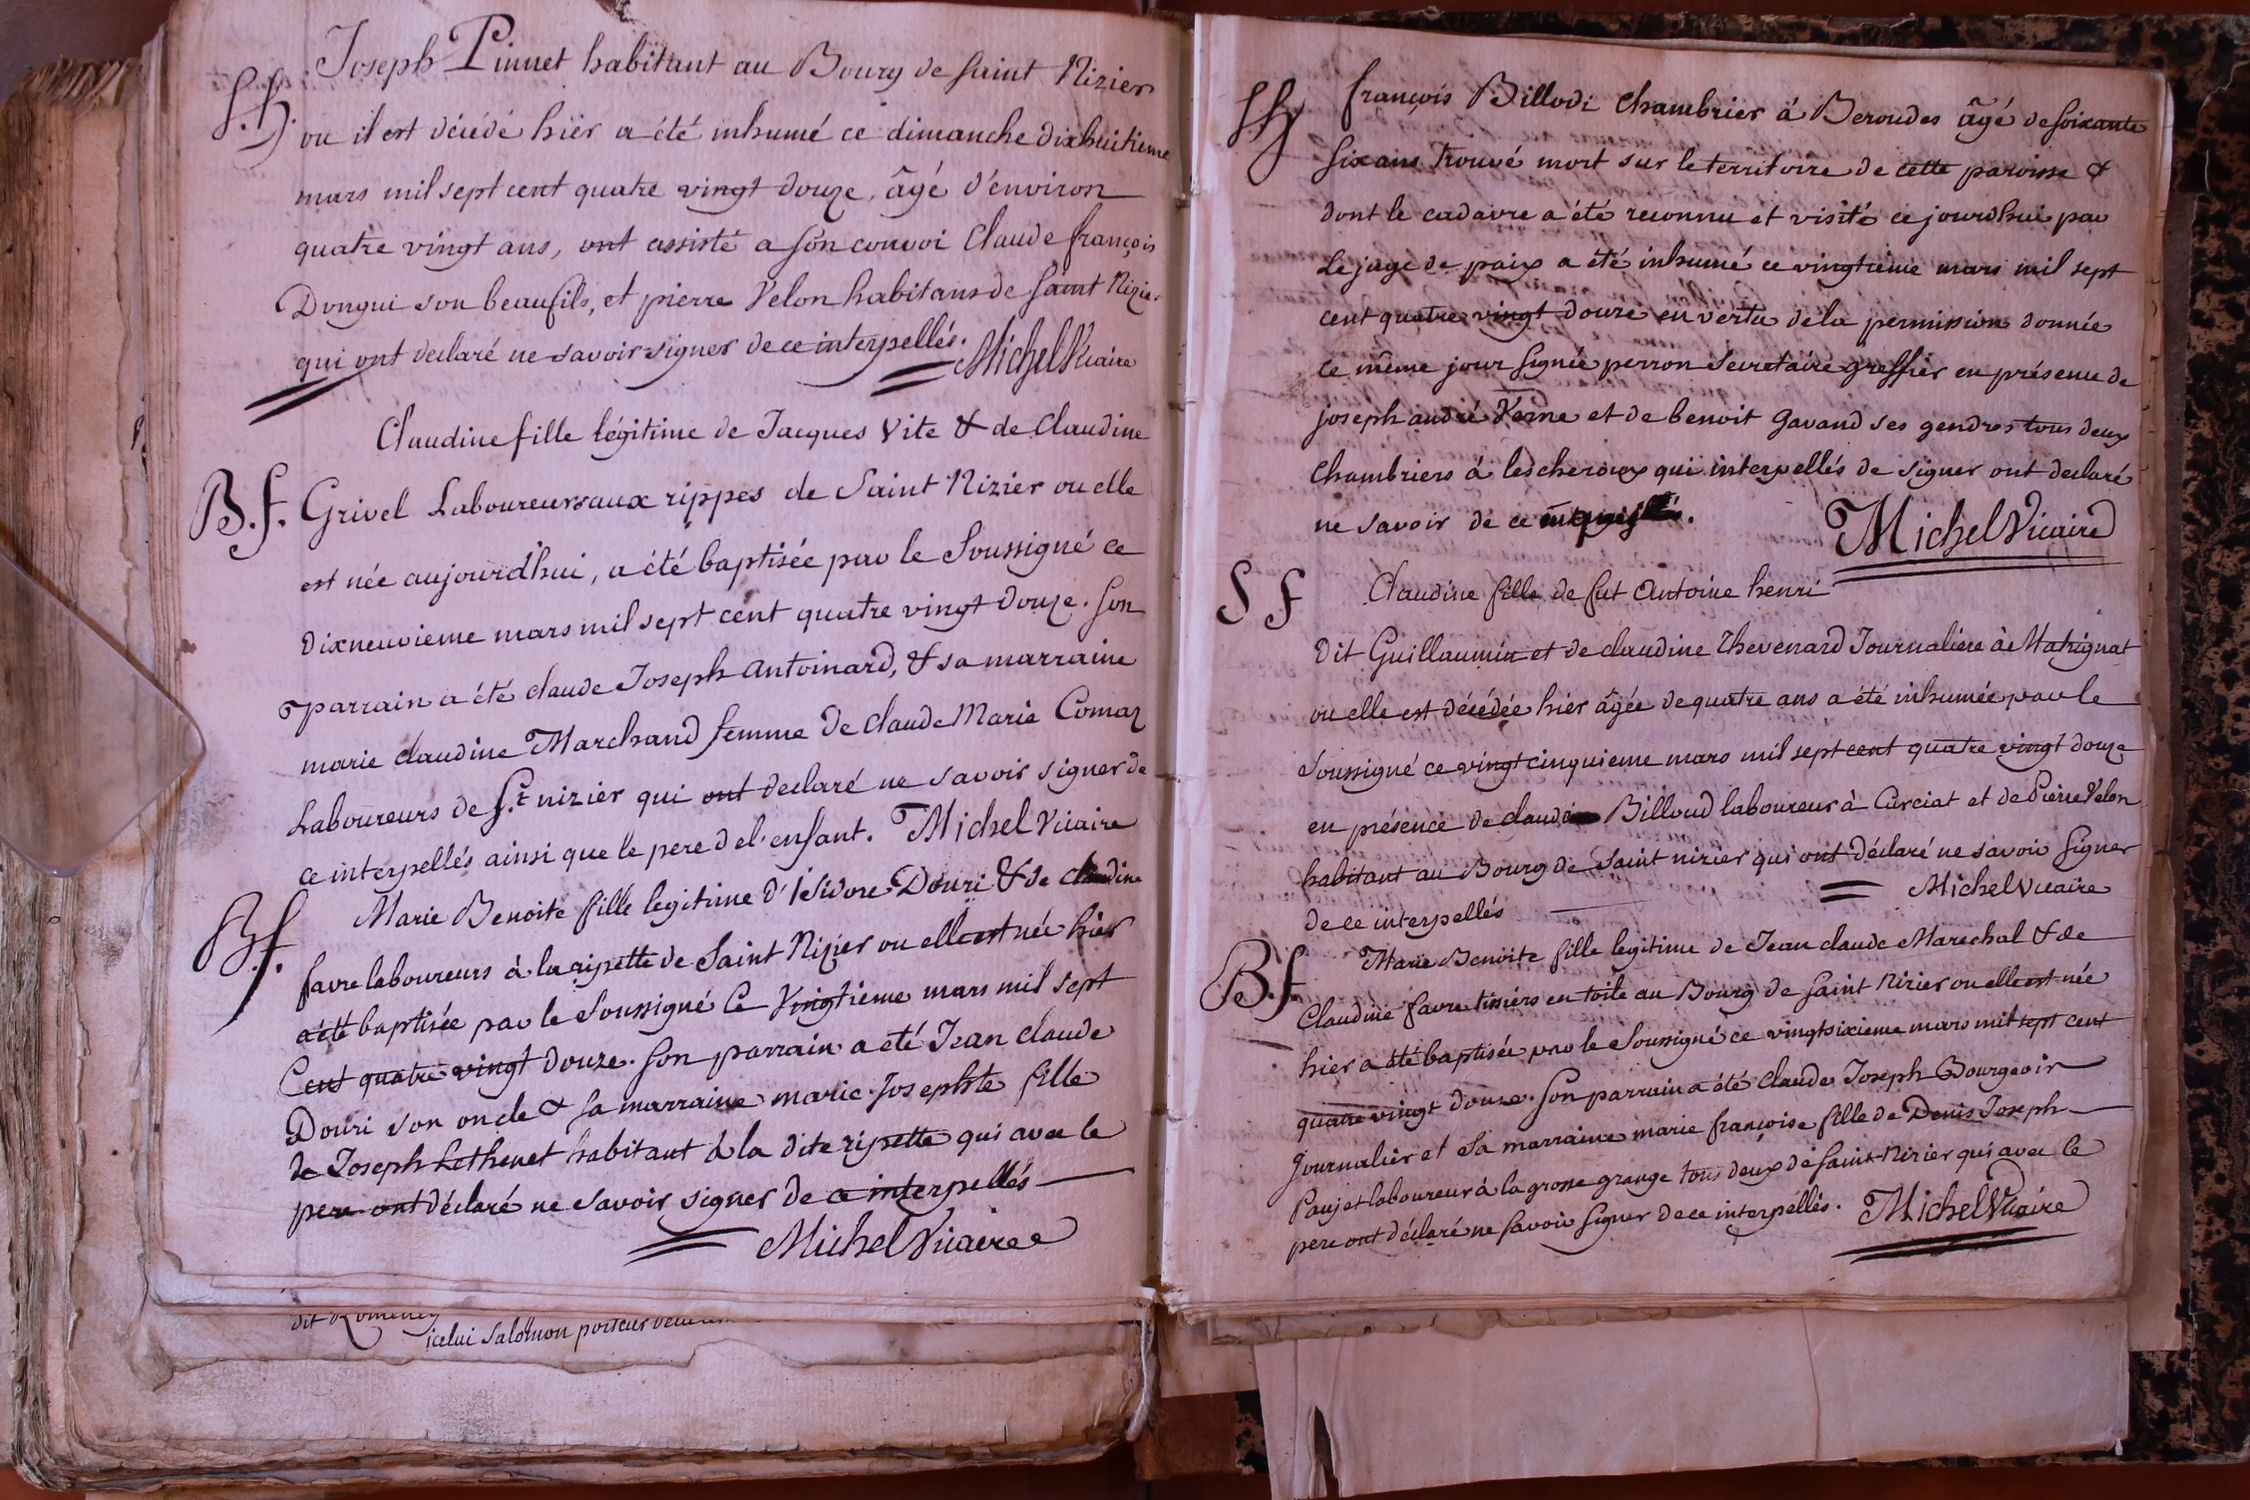 Joseph Pinnet habitant au Bourg de saint Nizier
S.h. ou il est décédé hièr a été inhumé ce dimanche dixhuitieme
mars mil sept cent quatre vingt douze, âgé d'environ
quatre vingt ans, ont assisté a son convoi Claude françois
Donguï son beaufils, et pierre Velon habitans de saint Nizier
qui ont declaré ne savoir signer de ce interpellés. Michel Vicaire
Claudine fille légitime de Jacques Vite & de Claudine
B.f. Grivel Laboureurs aux rippes de Saint Nizier ou elle
est née aujourd'hui, a été baptisée par le Soussigné ce
dixneuvieme mars mil sept cent quatre vingt douze. son
parrain a été claude Joseph antoinard, & sa marraine
marie claudine Marchand femme de claude Marie Comaz
Laboureurs de St nizier qui ont declaré ne savoir signer de
ce interpellés ainsi que le pere de l'enfant. Michel Vicaire
Marie Benoite fille legitime d'isidore Douri & de claudine
B.f. favre laboureurs à la ripette de Saint Nizier ou elle est née hièr
a été baptisée par le Soussigné ce vingtieme mars mil sept
Cent quatre vingt douze. son parrain a été Jean claude
Douri son oncle & sa marraine marie Josephte fille
de Joseph Lethenet habitant à la dite ripette qui avec le
pere ont déclaré ne savoir signer de ce interpellés
Michel Vicaire
dit Romenay
icelui Salomon porteur
S h françois Billodi chambrier à Beroudes âgé de soixante
six ans trouvé mort sur le territoire de cette paroisse &
dont le cadavre a été reconnu et visité ce jourdhui par
Le juge de paix a été inhumé ce vingtieme mars mil sept
cent quatre vingt douze en vertu de la permission donnée
ce même jour signée perron secretaire greffier en présence de
joseph andré Verne et de benoit gavand ses gendres tous deux
chambriers à lescheroux qui interpellés de signer ont declaré
ne savoir de ce
Michel Vicaire
S f Claudine fille de fut antoine henri
dit Guillaumin et de claudine Thevenard Journaliere à Matignat
ou elle est décédée hièr âgée de quatre ans a été inhumée par le
Soussigné ce vingt cinquieme mars mil sept cent quatre vingt douze
en présence de claude Billoud laboureur à Curciat et de Pierre Velon
habitant au Bourg de Saint nizier qui ont déclaré ne savoir signer
de ce interpellés Michel Vicaire
B.f. Marie Benoite fille legitime de Jean claude Marechal & de
Claudine favre tissiers en toile au Bourg de saint Nizier ou elle est née
hier a été baptisée par le Soussigné ce vingtsixieme mars mil sept cent
quatre vingt douze. son parrain a été claude Joseph Bourgeois
Journalier et sa marraine marie françoise fille de Denis Joseph
Paujet laboureur à la grosse grange tous deux de saint Nizier qui avec le
pere ont déclaré ne savoir signer de ce interpellés. Michel Vicaire